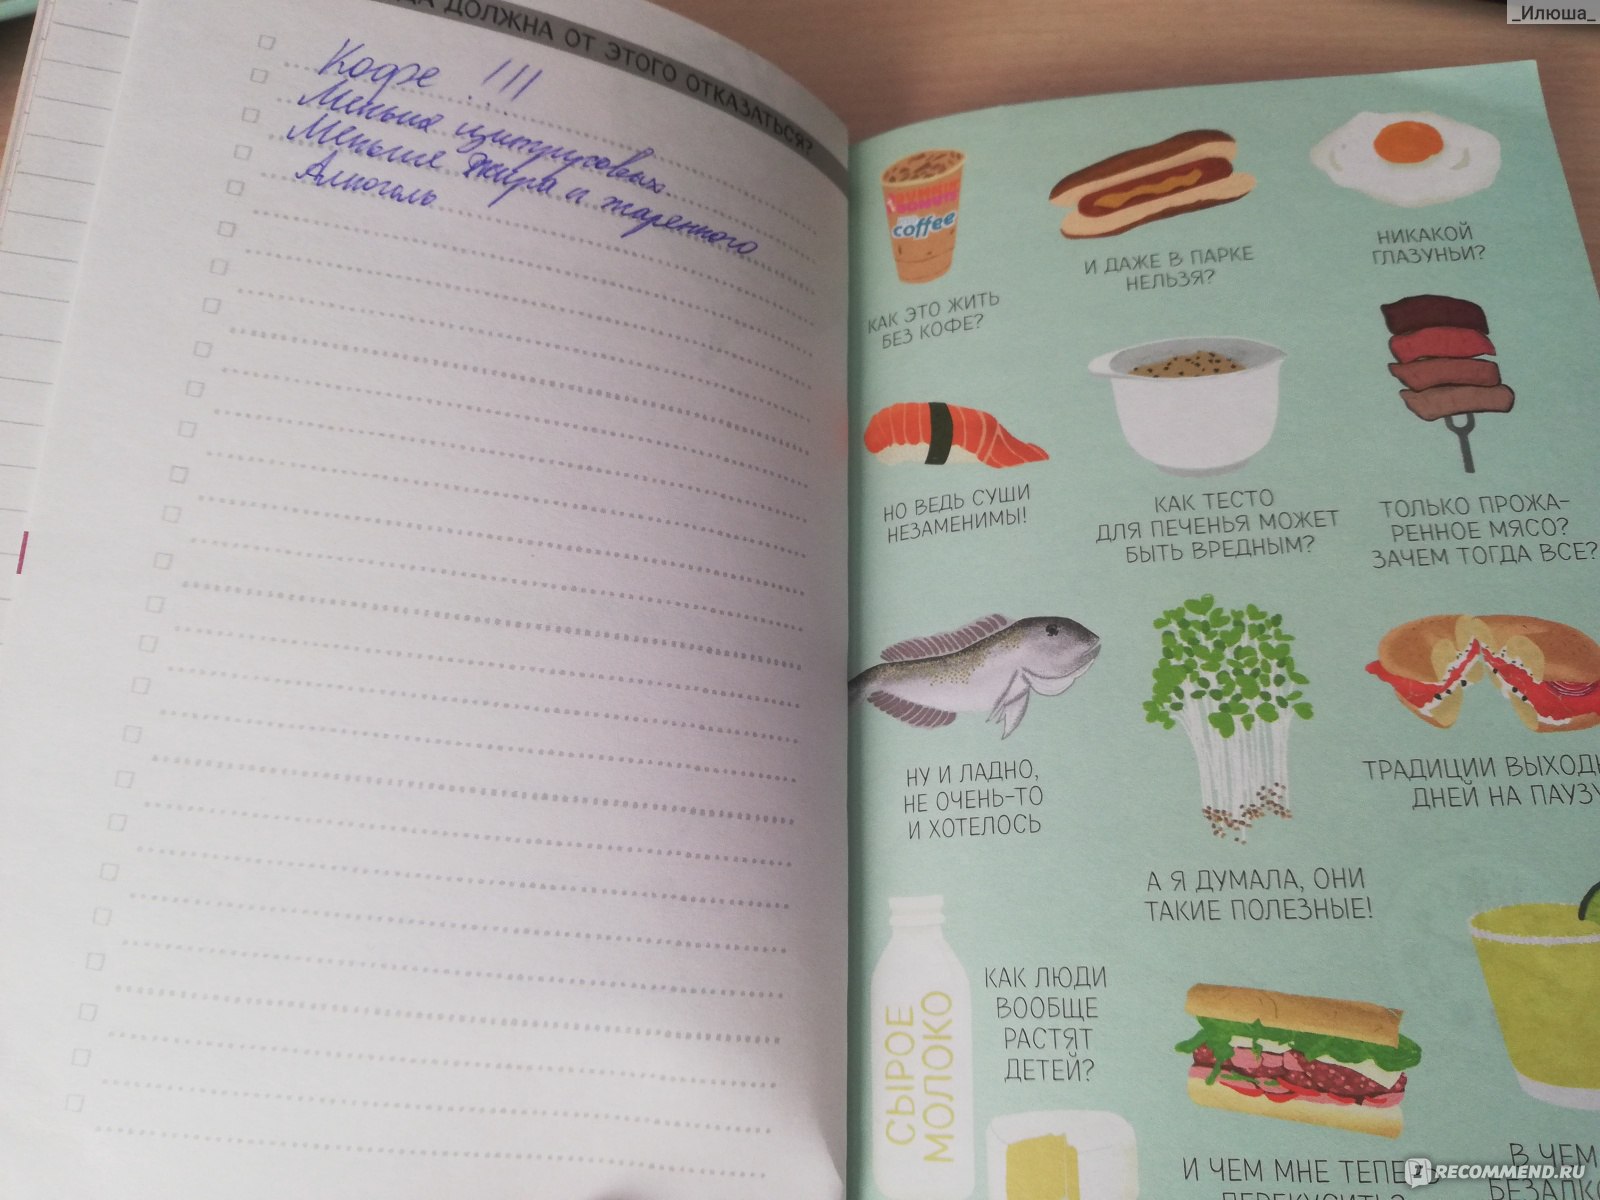 _Илюша_
ДОЛЖНА ОТ ЭТОГО ОТКАЗАТЬСЯ?
Кофе !!!
Меньше цитрусовых
Меньше жира и жаренного
Алкоголь
DONUTS
coffee
КАК ЭТО ЖИТЬ
БЕЗ КОФЕ?
И ДАЖЕ В ПАРКЕ
НЕЛЬЗЯ?
НИКАКОЙ
ГЛАЗУНЬИ?
НО ВЕДЬ СУШИ
НЕЗАМЕНИМЫ!
КАК ТЕСТО
ДЛЯ ПЕЧЕНЬЯ МОЖЕТ
БЫТЬ ВРЕДНЫМ?
ТОЛЬКО ПРОЖА-
РЕННОЕ МЯСО?
ЗАЧЕМ ТОГДА ВСЕ?
НУ И ЛАДНО,
НЕ ОЧЕНЬ-ТО
И ХОТЕЛОСЬ
А Я ДУМАЛА, ОНИ
ТАКИЕ ПОЛЕЗНЫЕ!
ТРАДИЦИИ ВЫХОДН
ДНЕЙ НА ПАУЗУ
СЫРОЕ
МОЛОКО
КАК ЛЮДИ
ВООБЩЕ
РАСТЯТ
ДЕТЕЙ?
И ЧЕМ МНЕ ТЕПЕРЬ
ПЕРЕКУСИТЬ?
В ЧЕМ
RECOMMEND.RU